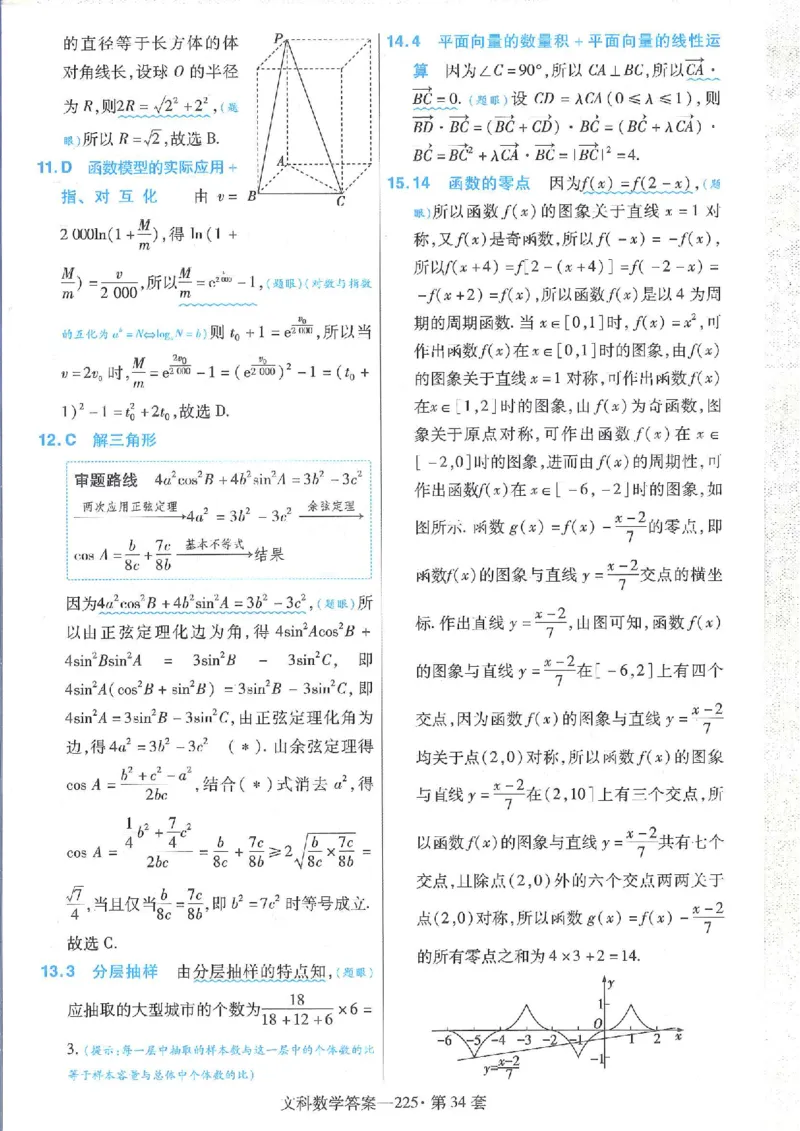 的直径等于长方体的体
对角线长,设球 O 的半径
为 R,则2R = √(2²+2²),(题
眼)所以 R=√2,故选 B.
P
A
B
C
11.D 函数模型的实际应用+
指、对 互 化 由 v=
2 000ln(1+M/m),得 ln(1+
M/m)=v/2 000,所以M/m=e^(v/2 000)-1,(题眼)(对数与指数
的互化为 aᵇ=N⇔logₐN=b)则 t₀+1=e^(v₀/2 000),所以当
v=2v₀时,M/m=e^(2v₀/2 000)-1=(e^(v₀/2 000))²-1=(t₀+
1)²-1=t₀²+2t₀,故选 D.
12.C 解三角形
审题路线 4a²cos²B+4b²sin²A=3b²-3c²
两次应用正弦定理→4a²=3b²-3c² 余弦定理→
cos A=b/8c+7c/8b 基本不等式→结果
因为4a²cos²B+4b²sin²A=3b²-3c²,(题眼)所
以由正弦定理化边为角,得 4sin²Acos²B+
4sin²Bsin²A = 3sin²B - 3sin²C, 即
4sin²A(cos²B+sin²B)=3sin²B-3sin²C,即
4sin²A=3sin²B-3sin²C,由正弦定理化角为
边,得4a²=3b²-3c² (*). 由余弦定理得
cos A=(b²+c²-a²)/2bc,结合(*)式消去 a²,得
cos A=(1/4b²+7/4c²)/2bc=b/8c+7c/8b≥2√(b/8c×7c/8b)=
√7/4,当且仅当b/8c=7c/8b,即 b²=7c² 时等号成立.
故选 C.
13.3 分层抽样 由分层抽样的特点知,(题眼)
应抽取的大型城市的个数为18/(18+12+6)×6=
3.(提示:每一层中抽取的样本数与这一层中的个体数的比
等于样本容量与总体中个体数的比)
14.4 平面向量的数量积+平面向量的线性运
算 因为∠C=90°,所以 CA⊥BC,所以CA→·
BC→=0.(题眼)设 CD=λCA(0≤λ≤1),则
BD→·BC→=(BC→+CD→)·BC→=(BC→+λCA→)·
BC→=BC→²+λCA→·BC→=|BC→|²=4.
15.14 函数的零点 因为f(x)=f(2-x),(题
眼)所以函数 f(x)的图象关于直线 x=1 对
称,又f(x)是奇函数,所以f(-x)=-f(x),
所以f(x+4)=f[2-(x+4)]=f(-2-x)=
-f(x+2)=f(x),所以函数f(x)是以 4 为周
期的周期函数. 当 x∈[0,1]时,f(x)=x²,可
作出函数f(x)在 x∈[0,1]时的图象,由f(x)
的图象关于直线 x=1 对称,可作出函数f(x)
在x∈[1,2]时的图象,由 f(x)为奇函数,图
象关于原点对称,可作出函数 f(x)在 x∈
[-2,0]时的图象,进而由 f(x)的周期性,可
作出函数f(x)在 x∈[-6,-2]时的图象,如
图所示. 函数 g(x)=f(x)-(x-2)/7的零点,即
函数f(x)的图象与直线 y=(x-2)/7交点的横坐
标. 作出直线 y=(x-2)/7,由图可知,函数 f(x)
的图象与直线 y=(x-2)/7在[-6,2]上有四个
交点,因为函数 f(x)的图象与直线 y=(x-2)/7
均关于点(2,0)对称,所以函数 f(x)的图象
与直线 y=(x-2)/7在(2,10]上有三个交点,所
以函数f(x)的图象与直线 y=(x-2)/7共有七个
交点,且除点(2,0)外的六个交点两两关于
点(2,0)对称,所以函数 g(x)=f(x)-(x-2)/7
的所有零点之和为 4×3+2=14.
y
1
O
-6 -5 -4 -3 -2 -1 1 2 x
-1
y=(x-2)/7
文科数学答案—225·第 34 套